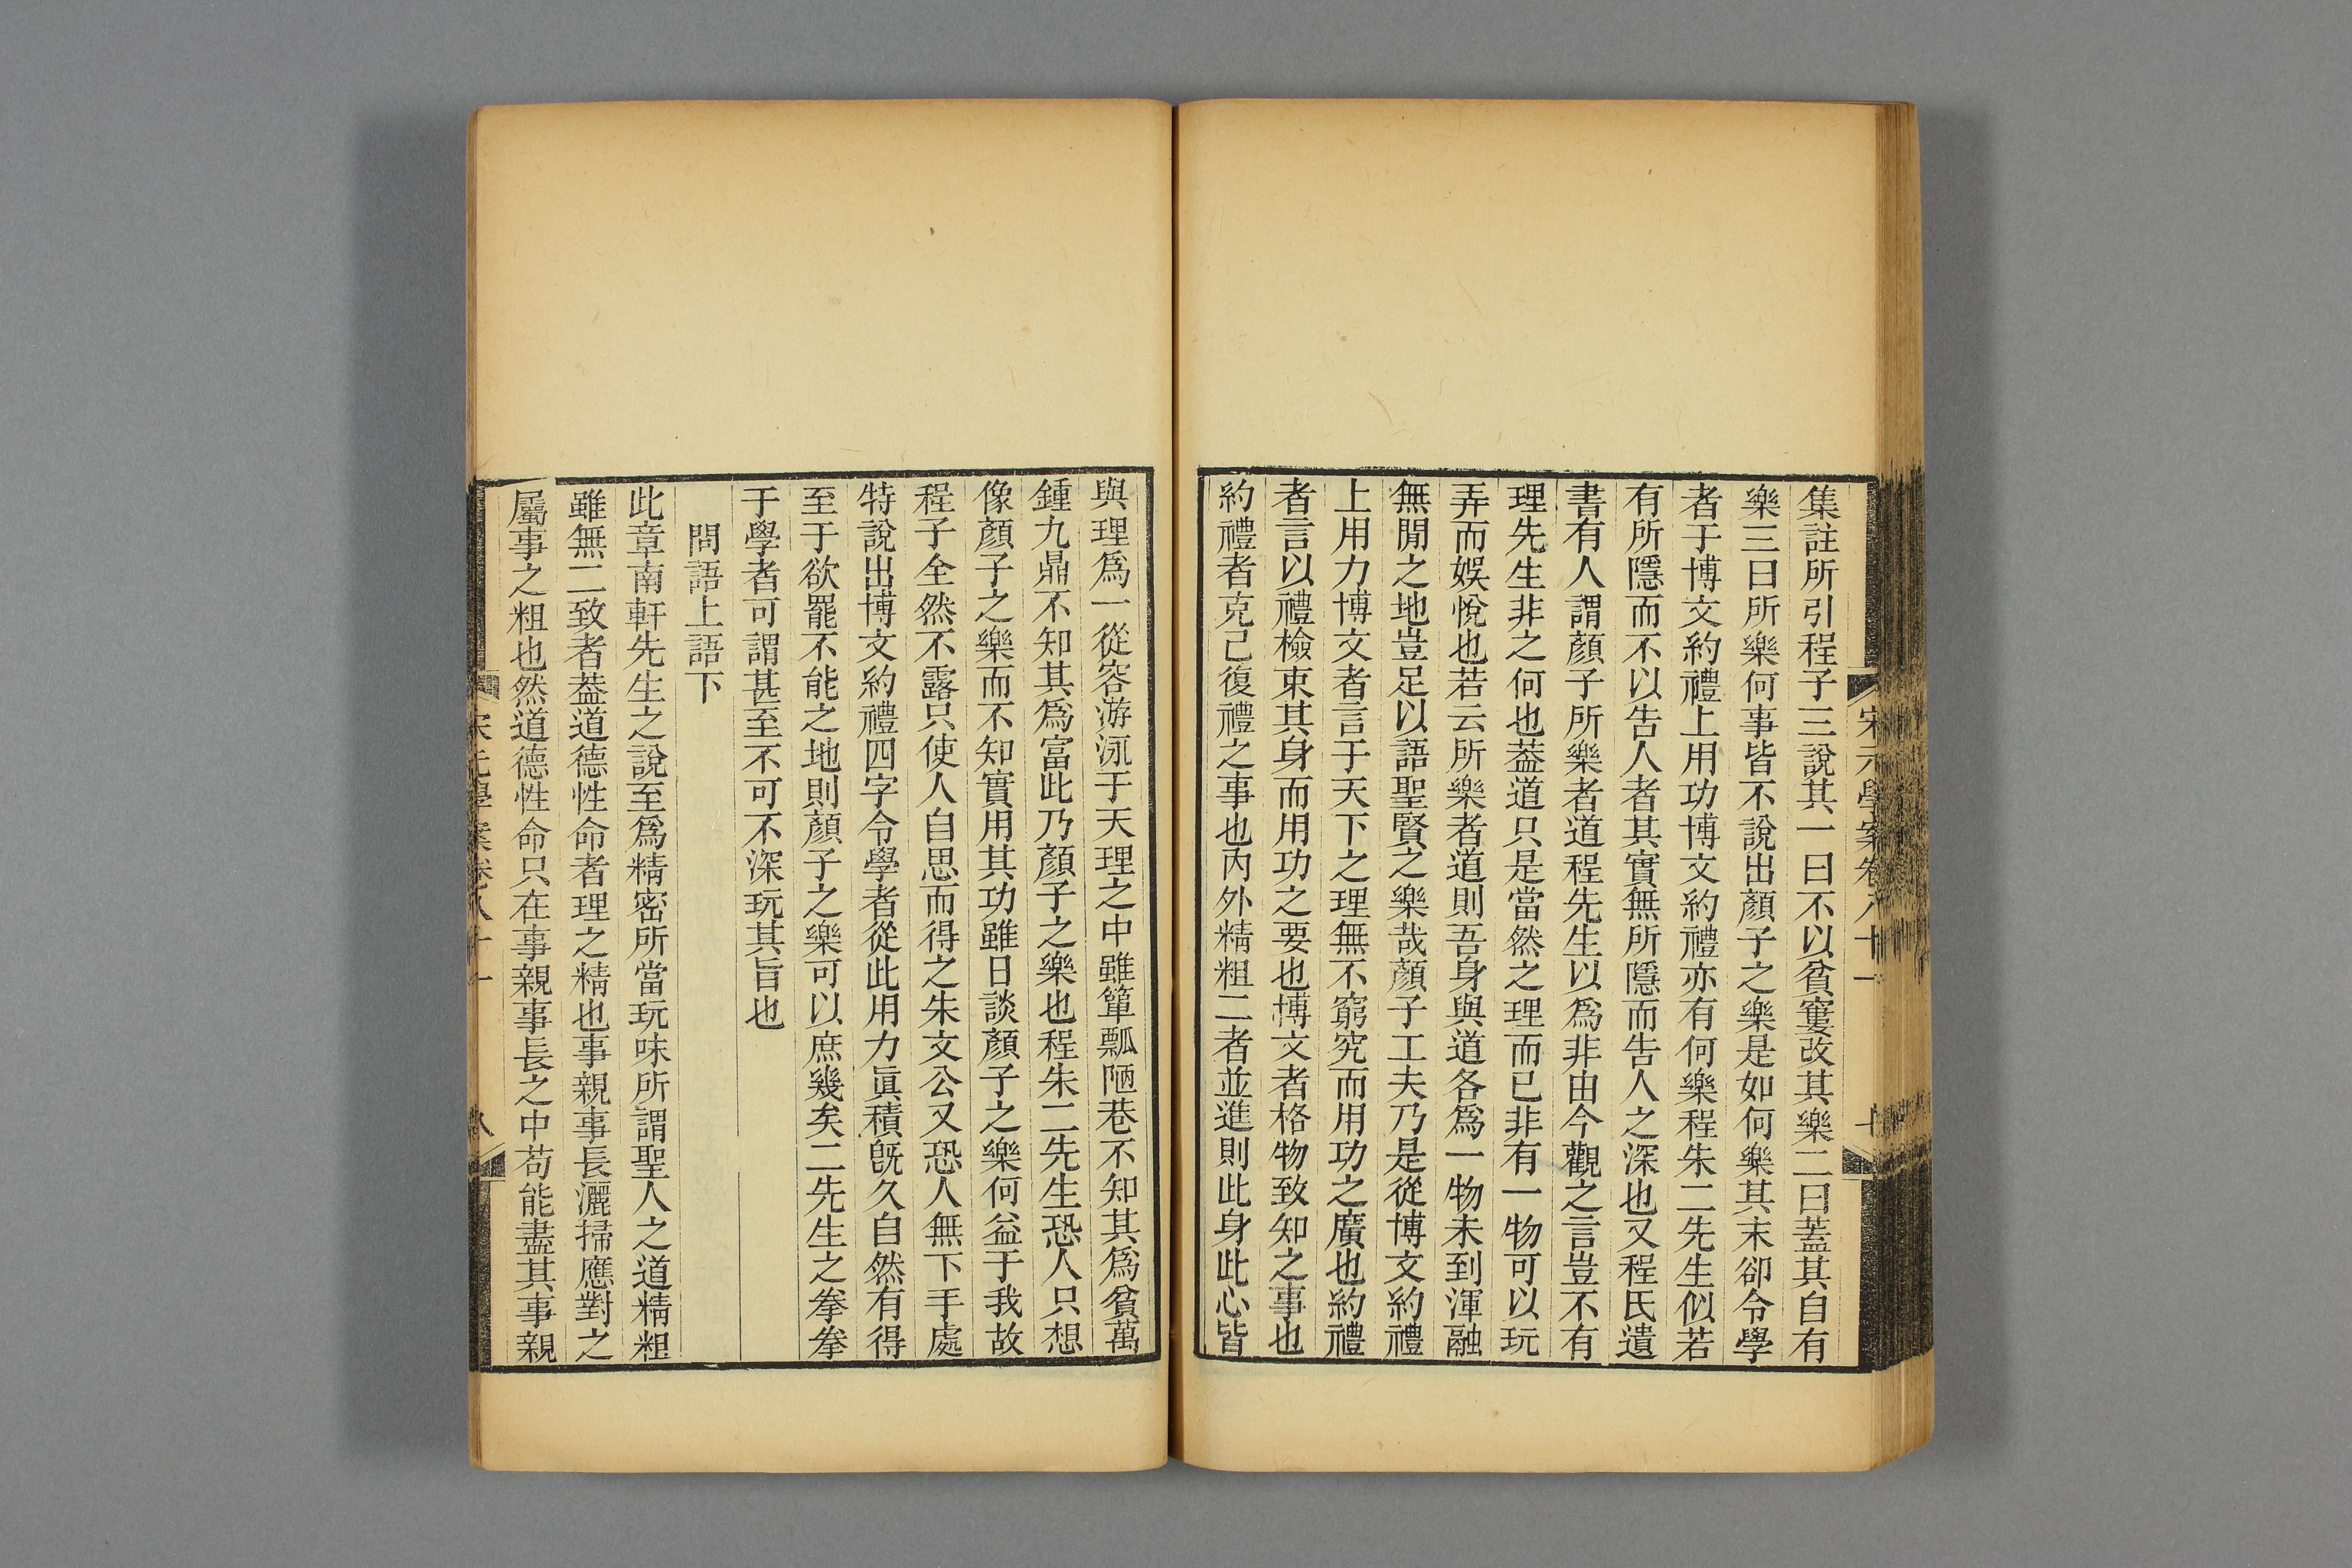 宋元學案卷八十一
七
集註所引程子三說其一曰不以貧窶改其樂二曰蓋其自有
樂三曰所樂何事皆不說出顏子之樂是如何樂其末卻令學
者于博文約禮上用功博文約禮亦有何樂程朱二先生似若
有所隱而不以告人者其實無所隱而告人之深也又程氏遺
書有人謂顏子所樂者道程先生以爲非由今觀之言豈不有
理先生非之何也葢道只是當然之理而已非有一物可以玩
弄而娛悅也若云所樂者道則吾身與道各爲一物未到渾融
無閒之地豈足以語聖賢之樂哉顏子工夫乃是從博文約禮
上用力博文者言于天下之理無不窮究而用功之廣也約禮
者言以禮檢束其身而用功之要也博文者格物致知之事也
約禮者克己復禮之事也內外精粗二者並進則此身此心皆
與理爲一從容游泳于天理之中雖簞瓢陋巷不知其爲貧萬
鍾九鼎不知其爲富此乃顏子之樂也程朱二先生恐人只想
像顏子之樂而不知實用其功雖日談顏子之樂何益于我故
程子全然不露只使人自思而得之朱文公又恐人無下手處
特說出博文約禮四字令學者從此用力眞積旣久自然有得
至于欲罷不能之地則顏子之樂可以庶幾矣二先生之拳拳
于學者可謂甚至不可不深玩其旨也
問語上語下
此章南軒先生之說至爲精密所當玩味所謂聖人之道精粗
雖無二致者葢道德性命者理之精也事親事長灑掃應對之
屬事之粗也然道德性命只在事親事長之中苟能盡其事親
宋元學案卷八十一
八